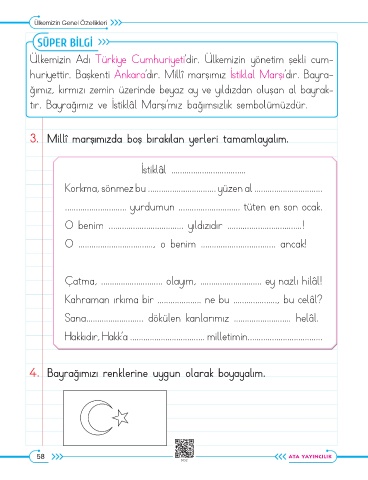 Ülkemizin Genel Özellikleri
SÜPER BİLGİ
Ülkemizin Adı Türkiye Cumhuriyeti'dir. Ülkemizin yönetim şekli cum-
huriyettir. Başkenti Ankara'dır. Millî marşımız İstiklal Marşı'dır. Bayra-
ğımız, kırmızı zemin üzerinde beyaz ay ve yıldızdan oluşan al bayrak-
tır. Bayrağımız ve İstiklâl Marşı'mız bağımsızlık sembolümüzdür.
3. Millî marşımızda boş bırakılan yerleri tamamlayalım.
İstiklâl ..................................
Korkma, sönmez bu ............................... yüzen al ...............................
............................ yurdumun ............................ tüten en son ocak.
O benim .................................. yıldızıdır ..................................!
O ..................................., o benim .................................. ancak!
Çatma, ............................ olayım, ............................ ey nazlı hilâl!
Kahraman ırkıma bir .................... ne bu ...................., bu celâl?
Sana.......................... dökülen kanlarımız .......................... helâl.
Hakkıdır, Hakk'a .................................. milletimin..................................
4. Bayrağımızı renklerine uygun olarak boyayalım.
58
ATA YAYINCILIK